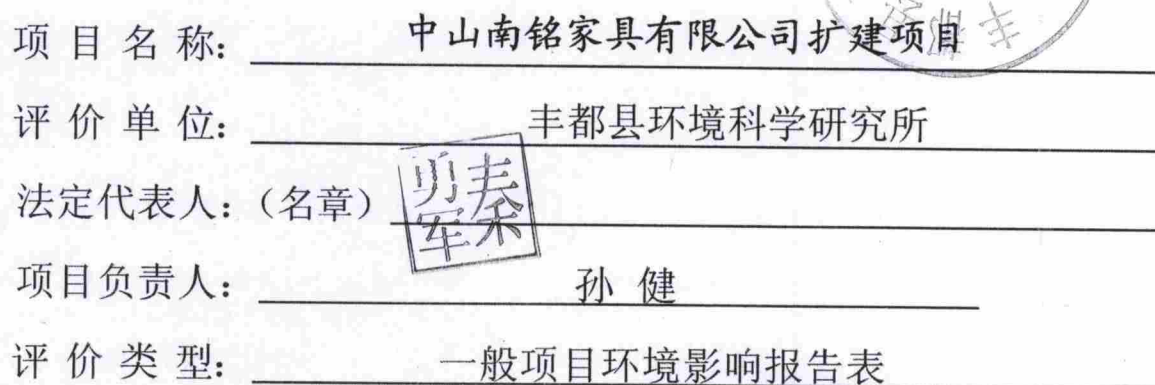 项目名称：中山南铭家具有限公司扩建项目
评价单位：丰都县环境科学研究所
法定代表人：（名章）秦勇军
项目负责人：孙健
评价类型：一般项目环境影响报告表